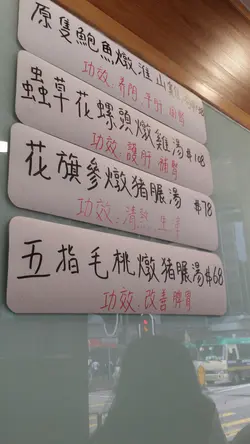 原隻鮑魚燉淮山雞
功效：養陰 平肝 補腎
蟲草花螺頭燉雞湯$108
功效：護肝 補腎
花旗參燉豬𦟌湯 $78
功效：清熱 生津
五指毛桃燉豬𦟌湯$68
功效：改善脾胃